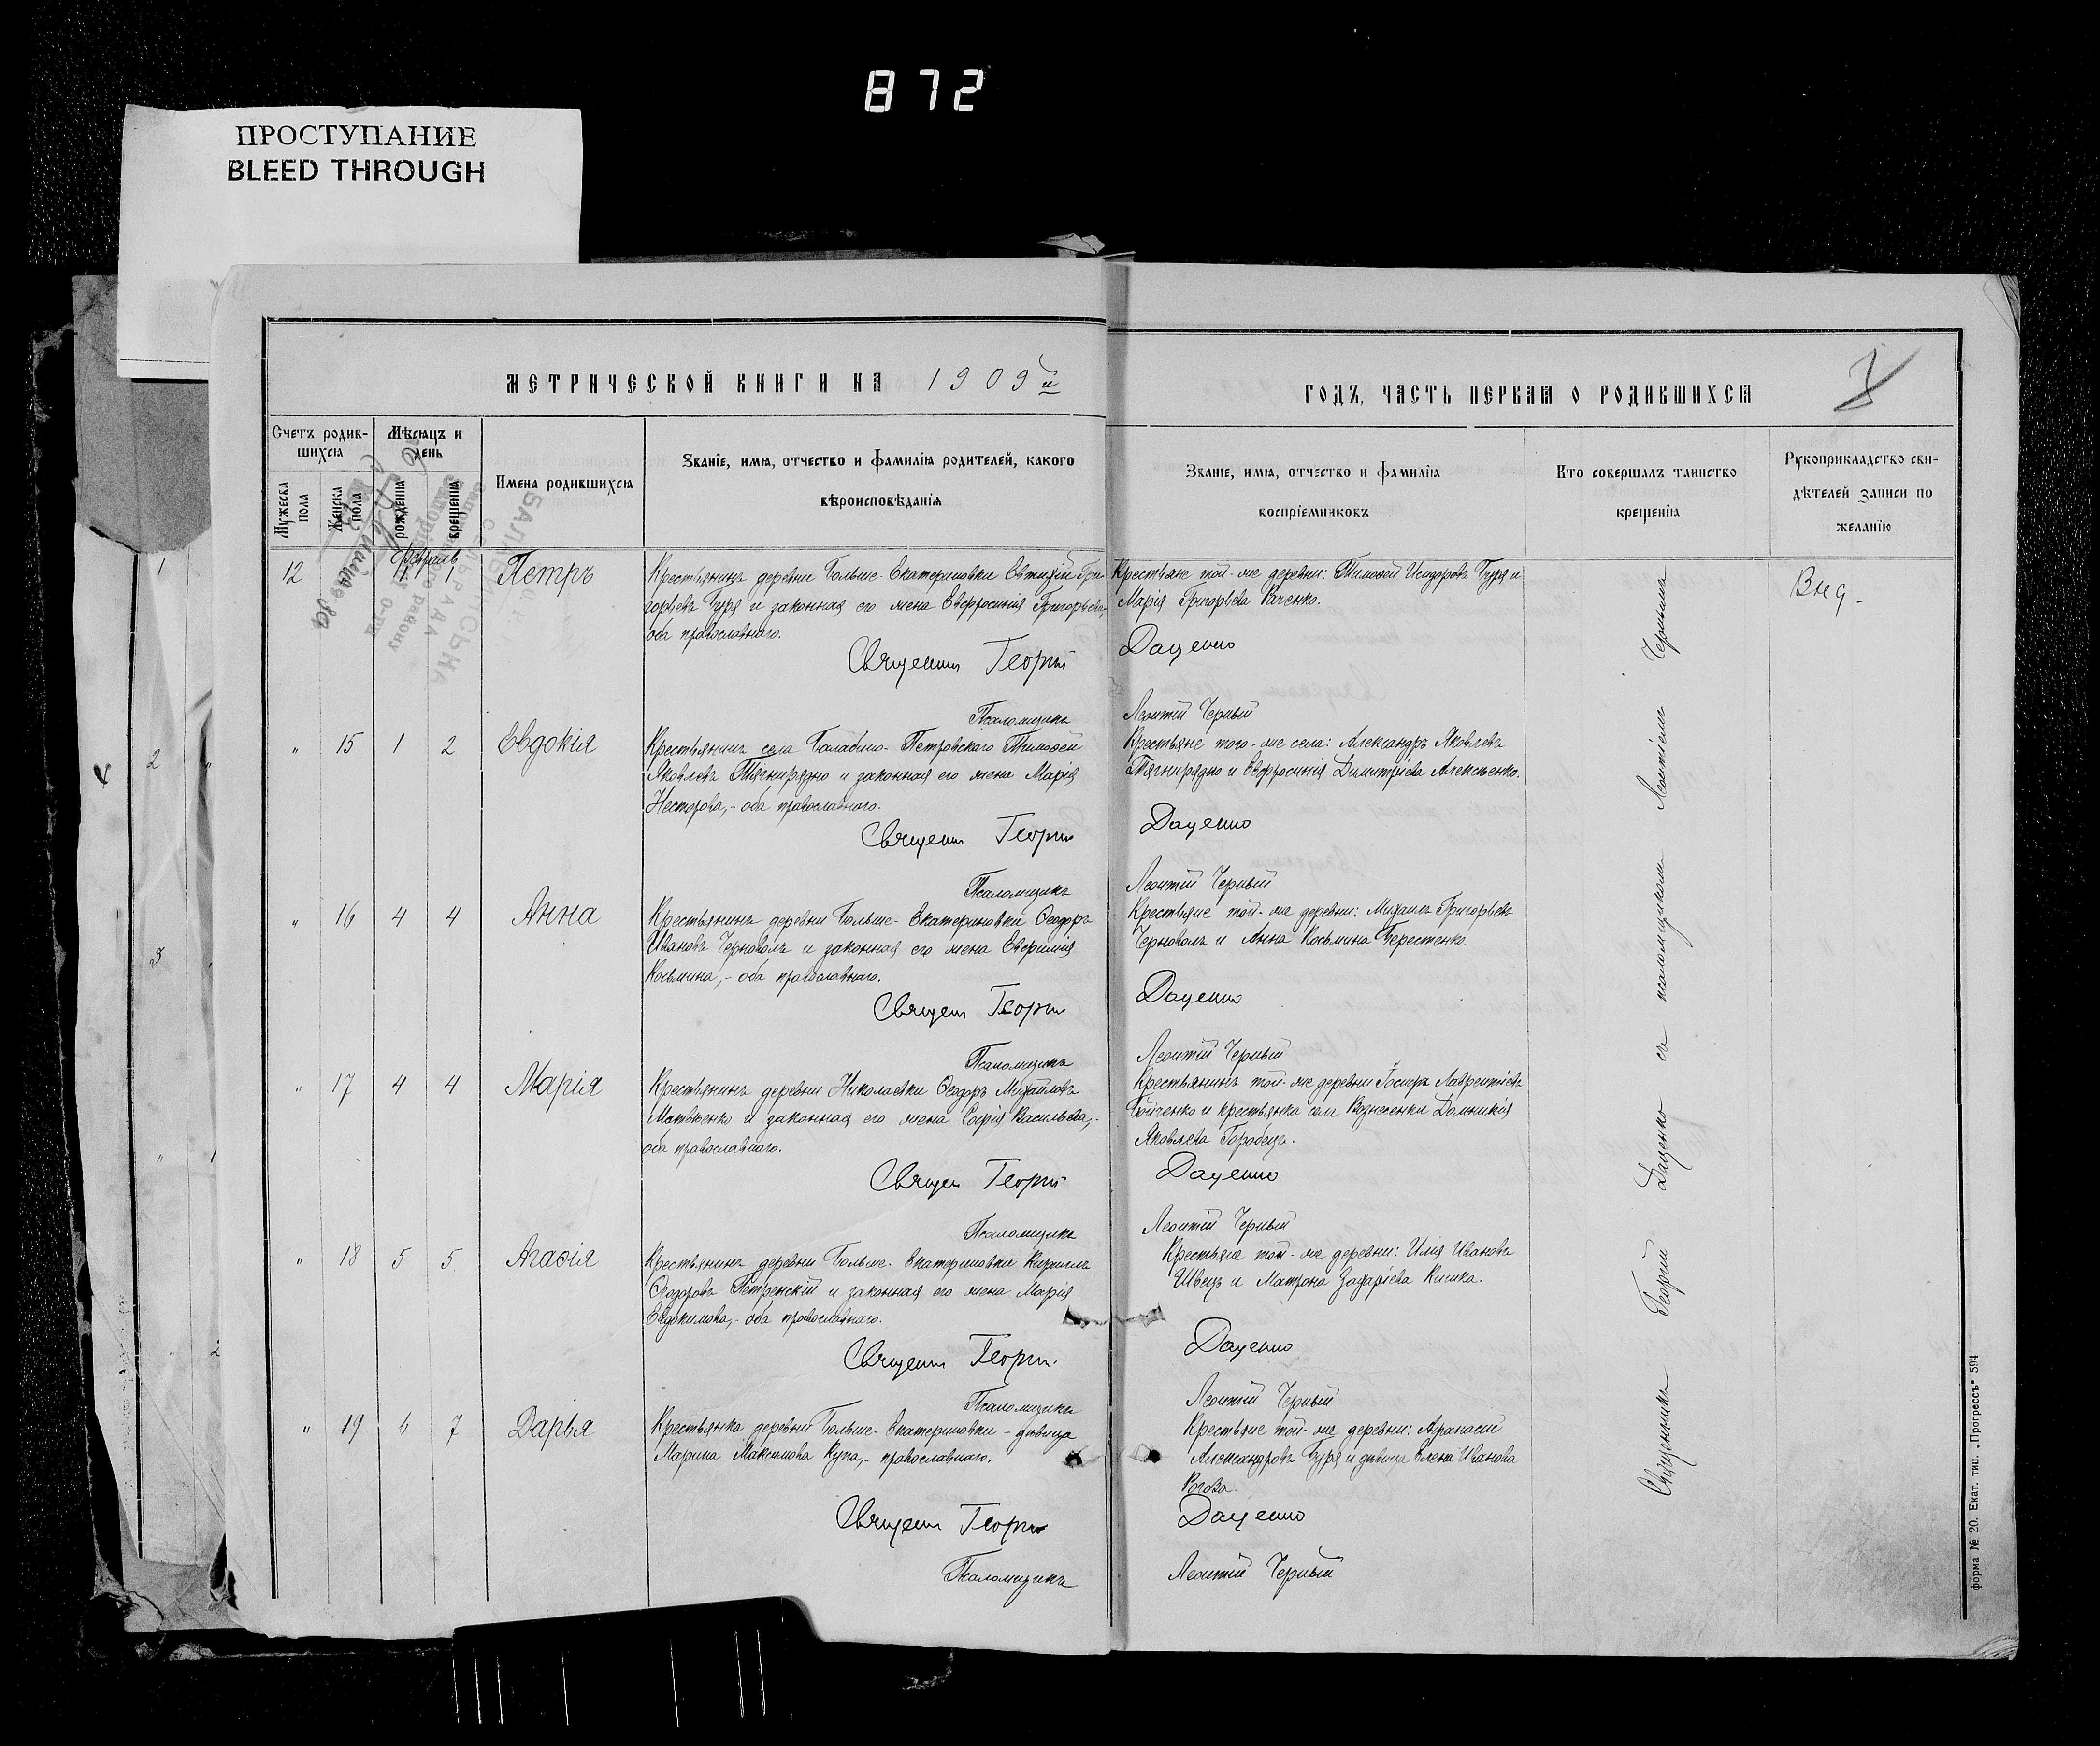 872
ПРОСТУПАНИЕ
BLEED THROUGH
МЕТРИЧЕСКОЙ КНИГИ НА 1909й
ГОДЪ, ЧАСТЬ ПЕРВАЯ О РОДИВШИХСЯ
Счетъ родив-
шихся
Мужеска пола
Женска пола
Мѣсяцъ и
день
рожденія
крещенія
Имена родившихся
Званіе, имя, отчество и фамилія родителей, какого
вѣроисповѣданія
Званіе, имя, отчество и фамилія
воспріемниковъ
Кто совершалъ таинство
крещенія
Рукоприкладство сви-
дѣтелей записи по
желанію
Февраль
12 1 Петръ
Крестьянинъ деревни Больше-Екатериновки Евтихій Гри-
горьевъ Буря и законная его жена Евфросинія Григорьева,
оба православнаго.
Крестьяне той-же деревни: Тимоѳей Исидоровъ Буря и
Марія Григорьева
Священникъ Георгій Даценко
Псаломщикъ Леонтій Черный
" 15 1 2 Евдокія
Крестьянинъ села Балабино-Петровскаго Тимоѳей
Яковлевъ Тягнирядно и законная его жена Марія
Несторова,- оба православнаго.
Крестьяне того-же села: Александръ Яковлевъ
Тягнирядно и Евфросинія Димитріева Алексѣенко.
Священ Георгій Даценко
Псаломщикъ Леонтій Черный
" 16 4 4 Анна
Крестьянинъ деревни Больше-Екатериновки Ѳеодоръ
Ивановъ Черноволъ и законная его жена Евфимія
Косьмина,- оба православнаго.
Крестьяне той-же деревни: Михаилъ Григорьевъ
Черноволъ и Анна Косьмина Берестенко.
Священ Георгій Даценко
Псаломщикъ Леонтій Черный
" 17 4 4 Марія
Крестьянинъ деревни Николаевки Ѳеодоръ Михайловъ
Матвѣенко и законная его жена Софія Васильева,-
оба православнаго.
Крестьянинъ той-же деревни Іосифъ Лаврентіевъ
Бойченко и крестьянка села Вознесенки Домникія
Яковлева Горобецъ.
Священ Георгій Даценко
Псаломщикъ Леонтій Черный
" 18 5 5 Агаѳія
Крестьянинъ деревни Больше-Екатериновки Кириллъ
Ѳеодоровъ Петренскій и законная его жена Марія
Евдокимова,- оба православнаго.
Крестьяне той-же деревни: Илія Ивановъ
Швецъ и Матрона Захаріева Кишка.
Священ Георгій Даценко
Псаломщикъ Леонтій Черный
" 19 6 7 Дарья
Крестьянка деревни Больше-Екатериновки - дѣвица
Марина Максимова Купа,- православнаго.
Крестьяне той-же деревни: Аѳанасій
Александровъ Буря и дѣвица Елена Иванова
Рогова.
Священ Георгій Даценко
Псаломщикъ Леонтій Черный
Священникъ Георгій Даценко съ псаломщикомъ Леонтіемъ Чернымъ
форма № 20. Екат. тип. „Прогрессъ“ 594